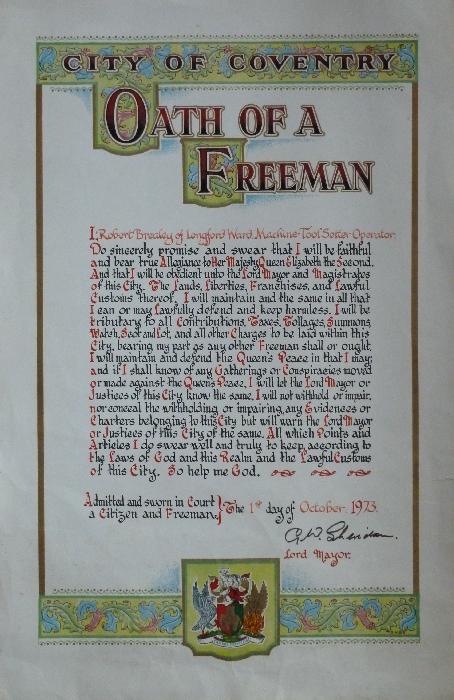 CITY OF COVENTRY
OATH OF A
FREEMAN
I, Robert Brealey of Longford Ward Machine Tool Setter Operator
Do sincerely promise and swear that I will be faithful
and bear true Allegiance to Her Majesty Queen Elizabeth the Second.
And that I will be obedient unto the Lord Mayor and Magistrates
of this City. The Lands, Liberties, Franchises, and Lawful
Customs thereof, I will maintain and the same in all that
I can or may Lawfully defend and keep harmless. I will be
tributary to all Contributions, Taxes, Tollages, Summons,
Watch, Scot and Lot, and all other Charges to be laid within this
City, bearing my part as any other Freeman shall or ought,
I will maintain and defend the Queen's Peace in that I may;
and if I shall know of any Gatherings or Conspiracies moved
or made against the Queen's Peace, I will let the Lord Mayor or
Justices of this City know the same, I will not withhold or impair,
nor conceal the withholding or impairing, any Evidences or
Charters belonging to this City but will warn the Lord Mayor
or Justices of this City of the same. All which Points and
Articles I do swear well and truly to keep, according to
the Laws of God and this Realm and the Lawful Customs
of this City. So help me God.
Admitted and sworn in Court
a Citizen and Freeman,
The 1st day of October 1973.
Lord Mayor.